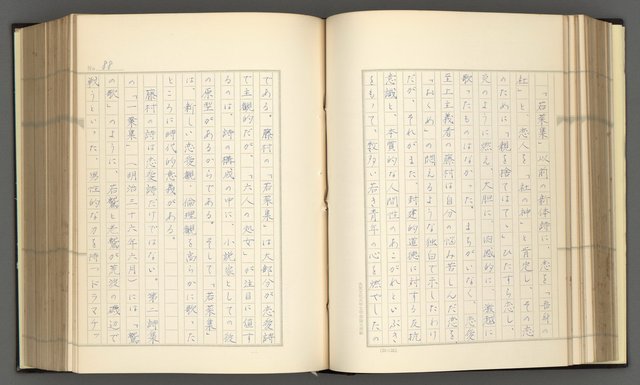 「若菜集」以前の新体詩に、恋を「吾身の
社」と、恋人を「社の神」と肯定し、その恋
のために「想を捨てはてて」ひたすら恋し、
炎のように燃え、大胆に、印画的に、
歌ったものはなかった。まちがいなく、恋愛
至上主義者の藤村は自分の悩み苦しんだ恋を
「おくめ」の悶えるような独白で示したわけ
だが、それがまた、封建的道徳に対する反抗
意識と、本質的な人間性のあこがれといぶき
をもって、数多い若き青年の心を燃やしたの
No. 88
である。藤村の「若菜集」は大部分が恋愛詩
で主観的だが、「六人の処女」が注目に値す
るのは、詩の構成の中に、小説家としての後
の原型があるからである。そして「若菜集」
は、新しい恋愛観、倫理観を高らかに歌った
ところに時代的意義がある。
藤村の詩は恋愛詩だけではない。第二詩集
の「一葉集」(明治三十六年六月)には「鷲
の歌」のように、若鷲と老鷲が荒波の磯辺で
戦うといった、男性的な力を持つドラマチッ